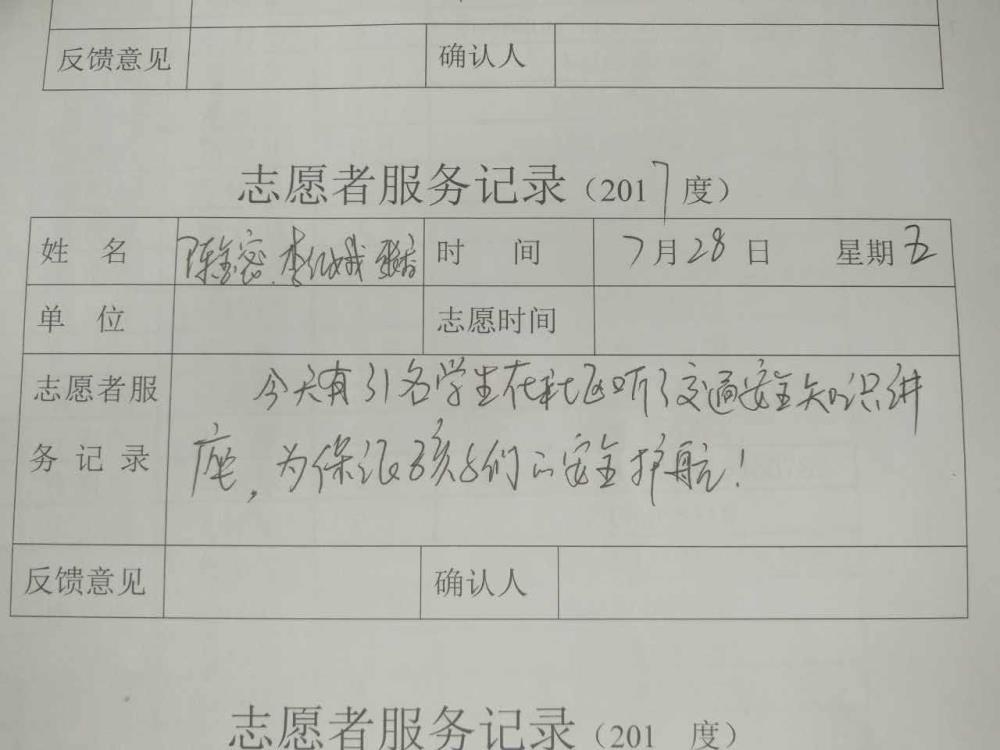 反馈意见 确认人
志愿者服务记录（2017度）
姓 名 李红娥 时 间 7月28日 星期五
单 位 志愿时间
志愿者服 今天有31名学生在社区听了交通安全知识讲
务 记 录 座，为保证孩子们的安全护航！
反馈意见 确认人
志愿者服务记录（201 度）